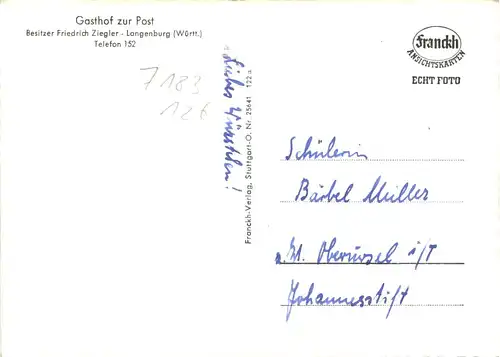 Gasthof zur Post
Besitzer Friedrich Ziegler - Langenburg (Württ.)
Telefon 152
7183
126
Liebes Würstchen!
Franckh-Verlag, Stuttgart-O. Nr. 25641 122a
Franckh
ANSICHTSKARTEN
ECHT FOTO
Schülerin
Bärbel Müller
z.Zt. Oberursel i/T
Johannesstift